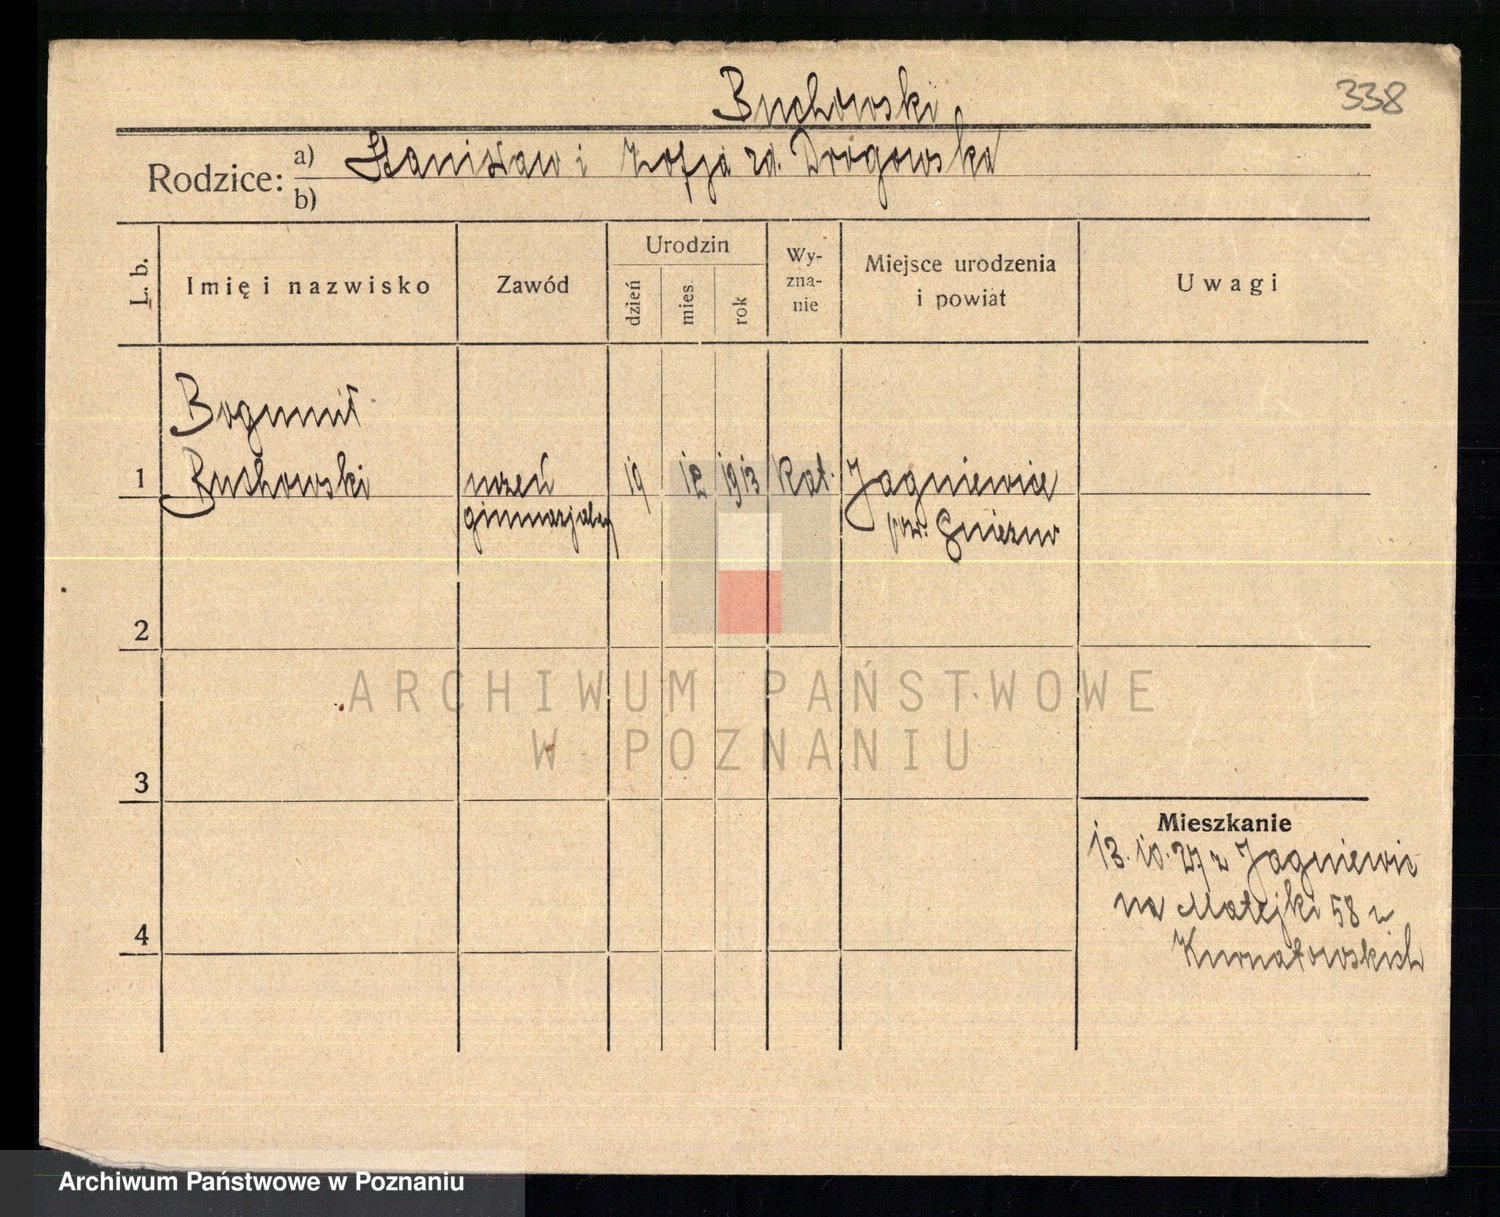 338
Buchowski
Rodzice: a) Stanisław i Zofja zd. Drogowska
b)
L. b.
Imię i nazwisko
Zawód
Urodzin
dzień
mies
rok
Wy-
zna-
nie
Miejsce urodzenia
i powiat
Uwagi
Bogumił
1 Buchowski uczeń 19 12 1913 Kat. Jagniewice
gimnazjalny pow. Gniezno
2
ARCHIWUM PAŃSTWOWE
W POZNANIU
3
Mieszkanie
13. 10. 27 z Jagniewic
na Matejki 58 u
4
Kurnatowskich
Archiwum Państwowe w Poznaniu